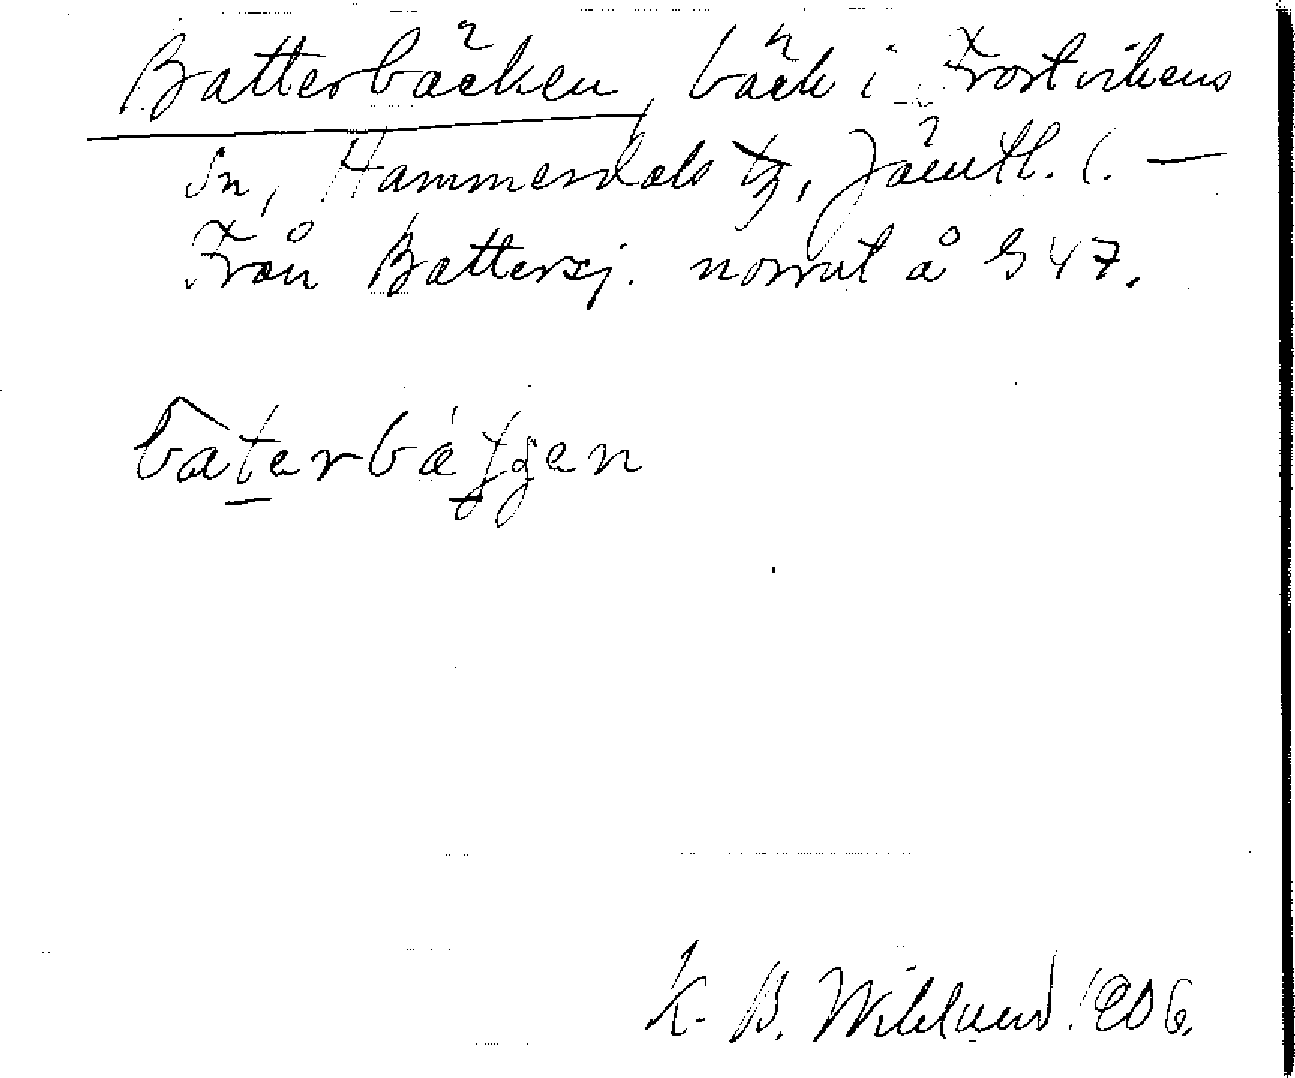 Batterbäcken, bäck i Frostvikens
sn, Hammerdals tg, Jämtl. l. —
Från Battersj. norrut å G 47.
K. B. Wiklund. 1906.